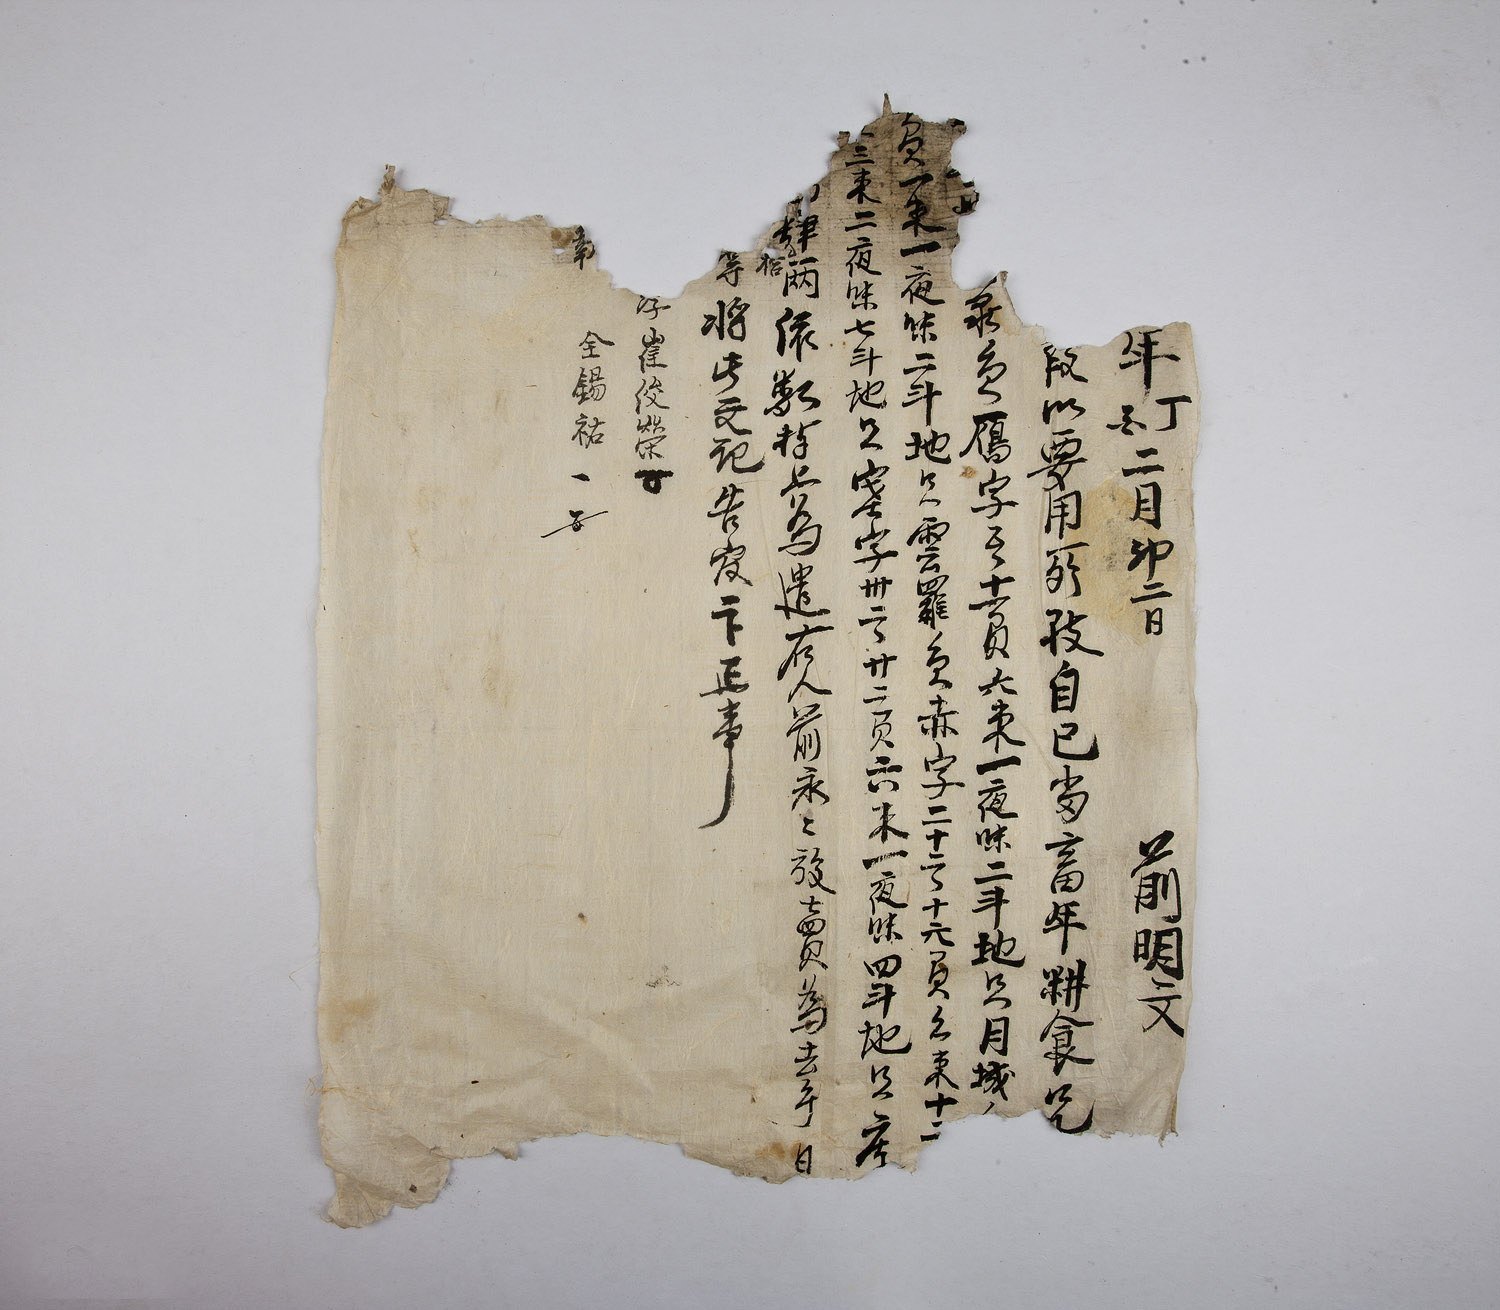 年丁丑二月初二日 前明文
段以要用所致自己畓累年耕食是
員鴈字五十負六束一夜味二斗地只月城
負一束一夜味二斗地只雲羅員赤字二十二十六負五束十二
三束二夜味七斗地只塞字卅二廿二負六束一夜味四斗地只庫
拾肆兩依數捧上為遣右人前永々放賣為去乎日
等將此文記告官卞正事
崔俊榮
全錫祐